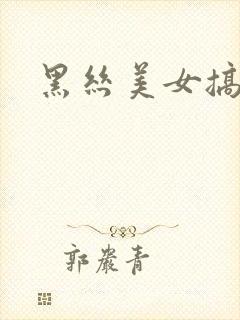 黑丝美女搞
郭嚴青